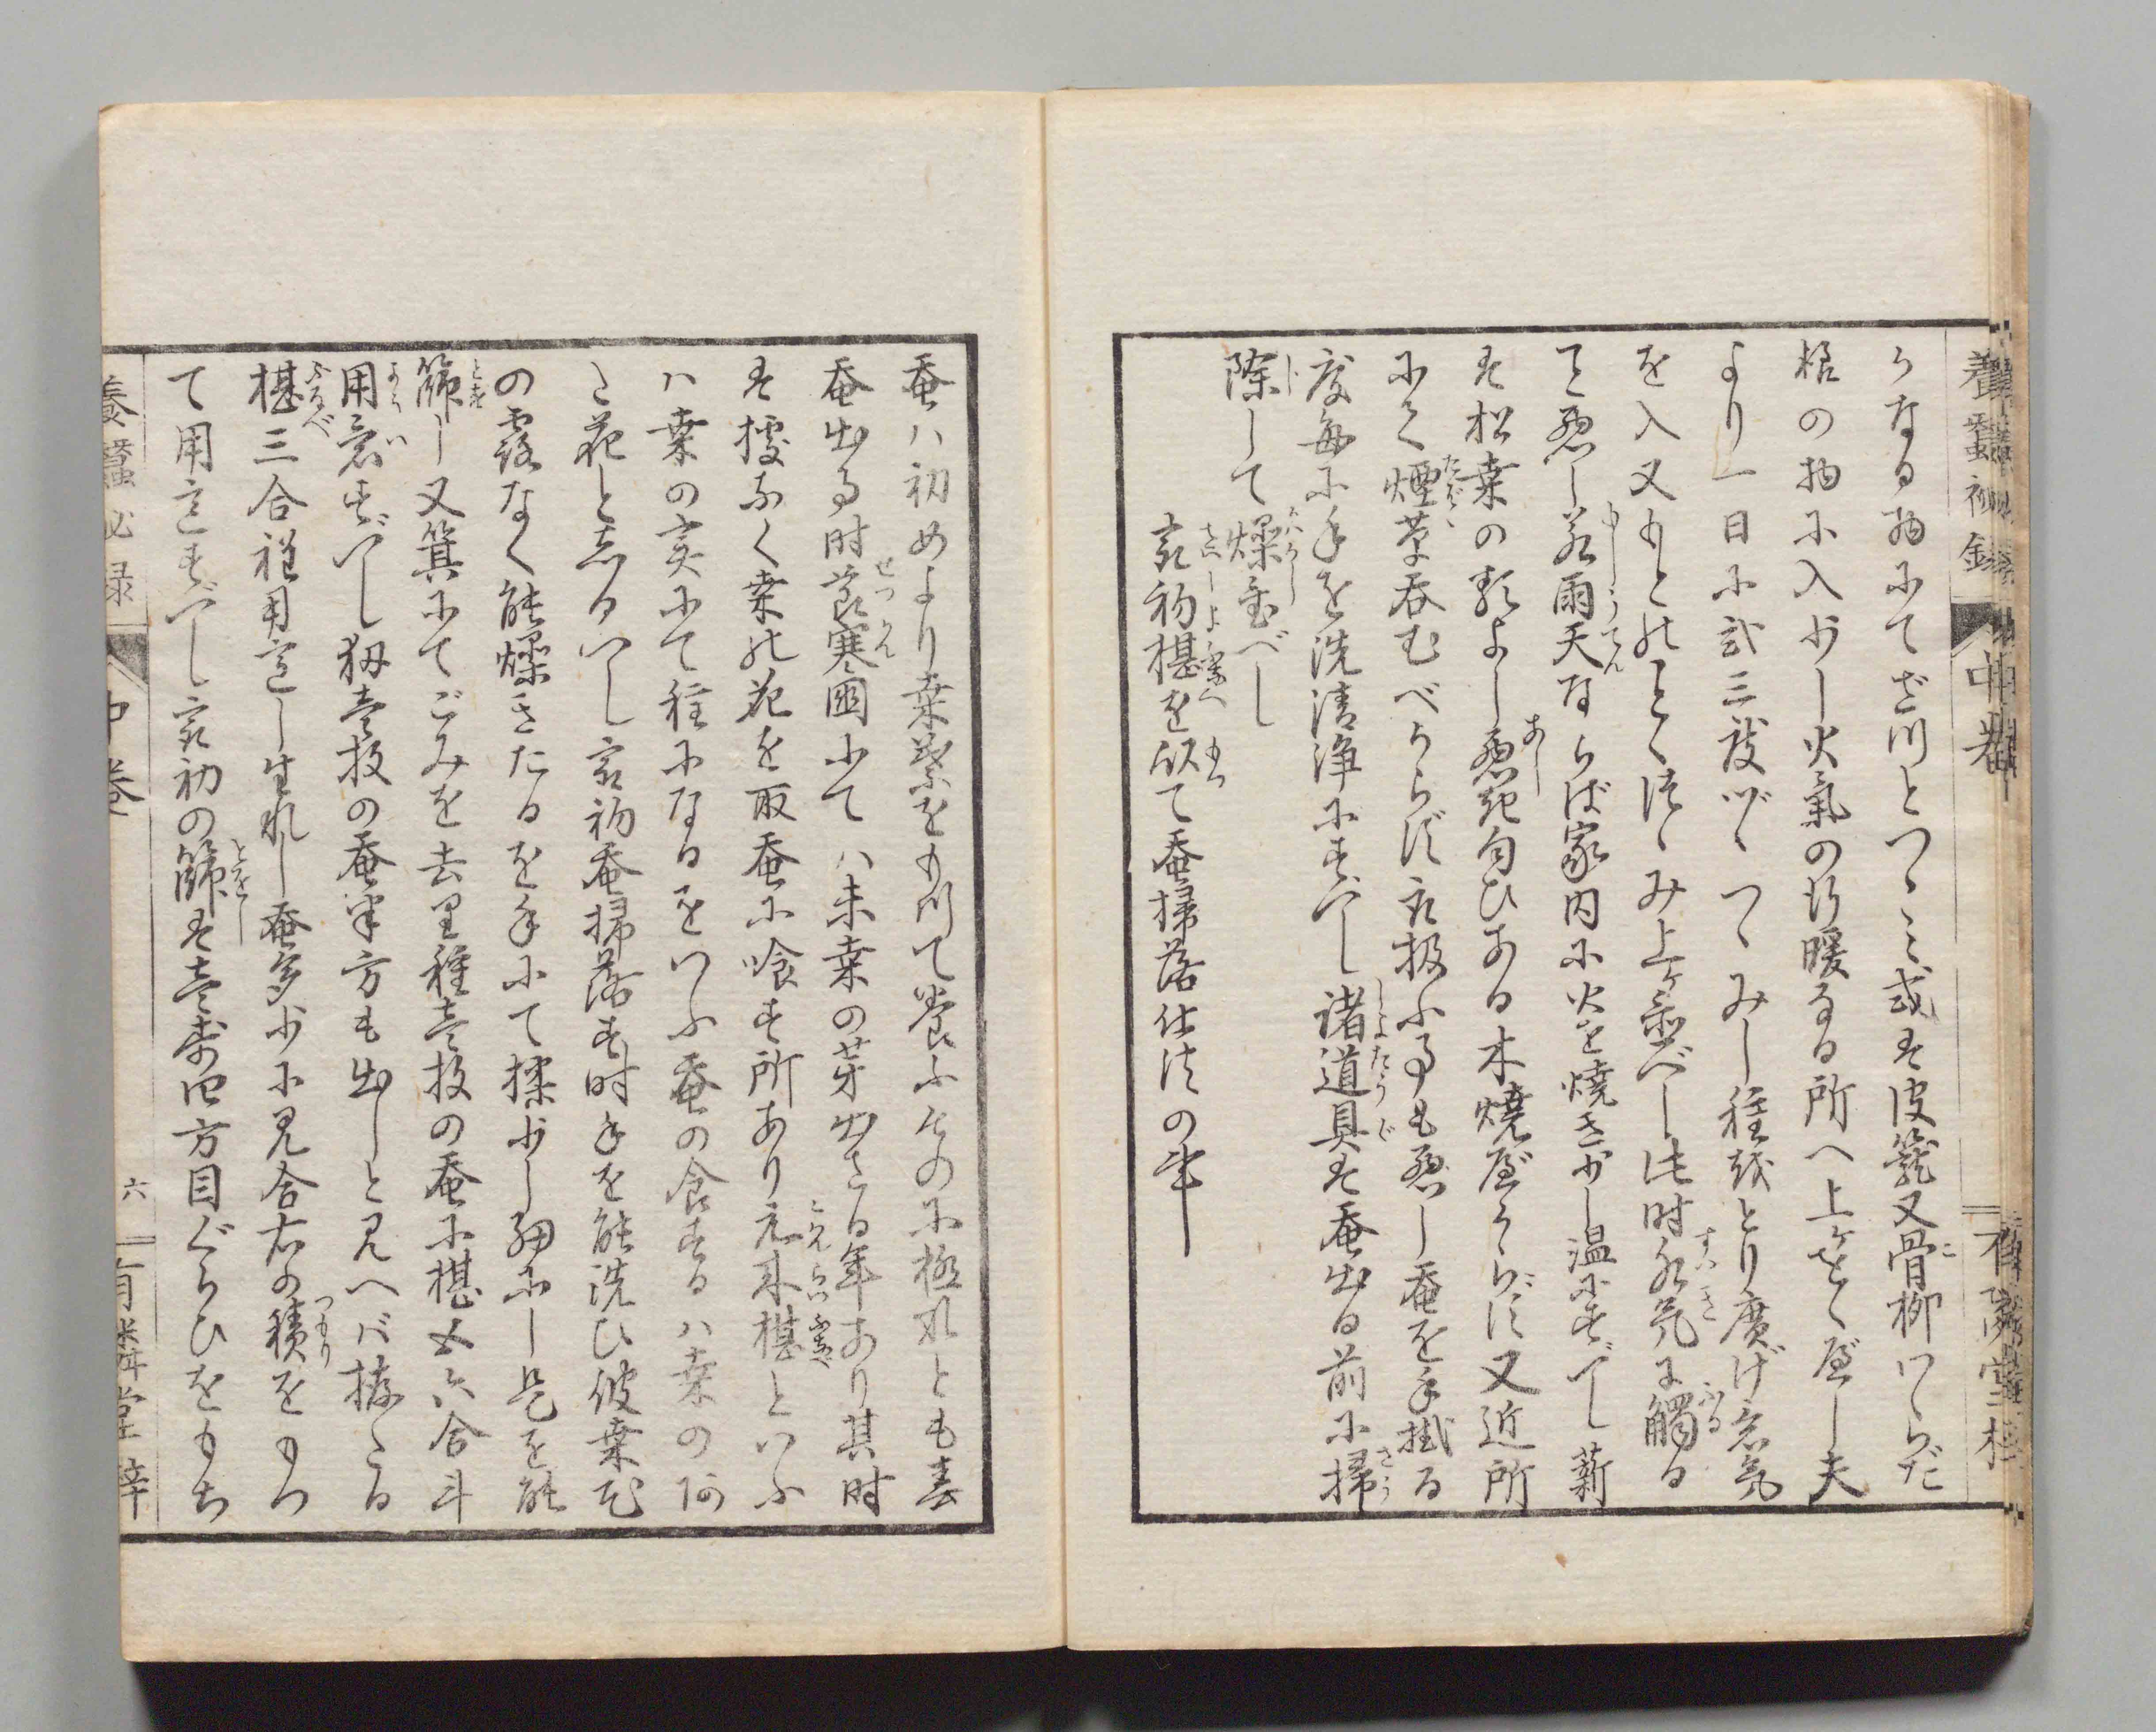 養蠶秘録 中巻 有隣堂梓
うなる物にてざつとつゝミ或は皮籠又骨柳つゞらだ
柜の物に入少し火氣の行暖なる所へ上ケをくべし夫
より一日に弐三度づゝつゝみし種紙とり廣げ空気
を入又もとのごとく法ゝみ上ケ置べし此時水気に觸る
て悪し若雨天ならば家内に火を焼き少し温にすべし薪
は松葉の類よし悪敷匂ひある木焼べからず又近所
にて煙草呑むべからず取扱ふ事も悪し蚕を手掛る
度毎に手を洗清浄にすべし諸道具は蚕出る前に掃
除して燥置べし
最初椹を以て蚕掃落仕法の事
蚕ハ初めより桑葉をもつて養ふものに極れとも春
蚕出る時節寒國にてハ未桑の芽出ざる年あり其時
は據なく桑の花を取蚕に喰す所あり元来椹といふ
ハ桑の実にて種になるをいふ蚕の食するハ桑の
花としるべし最初蚕掃落す時手を能洗ひ彼桑花
の露なく能燥きたるを手にて揉少し細にし是を能
篩し又箕にてごみを去り種壱枚の蚕に椹五六合斗
用意すべし扨壱枚の蚕半方も出しと見へバ揉たる
椹三合程用意し生れし蚕多少に見合右の積をもつ
て用意すべし最初の篩は壱寸四方目ぐらひをもち
養蠶必録 中巻 六 有隣堂梓